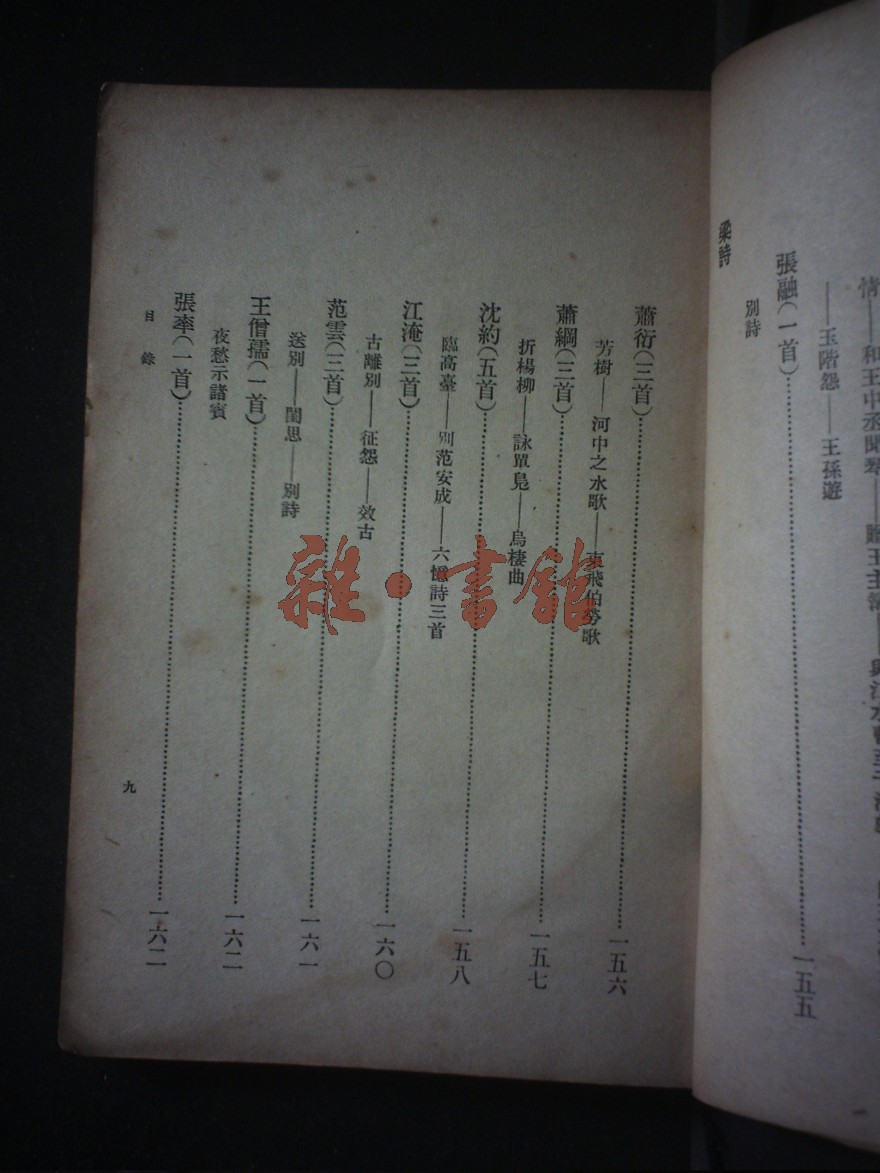 情——和王中丞聞琴——
——玉階怨——王孫遊
張融(一首)……一五五
別詩
梁詩
蕭衍(三首)……一五六
芳樹——河中之水歌——東飛伯勞歌
蕭綱(三首)……一五七
折楊柳——詠單鳧——烏棲曲
沈約(五首)……一五八
臨高臺——別范安成——六憶詩三首
江淹(三首)……一六〇
古離別——征怨——效古
范雲(三首)……一六一
送別——閨思——別詩
王僧孺(一首)……一六二
夜愁示諸賓
張率(一首)……一六二
目錄
九
雜·書館